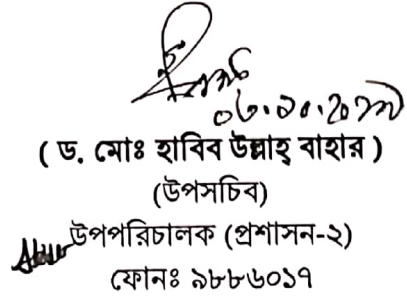 ( ড. মোঃ হাবিব উল্লাহ্ বাহার )
(উপসচিব)
উপপরিচালক (প্রশাসন-২)
ফোনঃ ৯৮৮৬০১৭